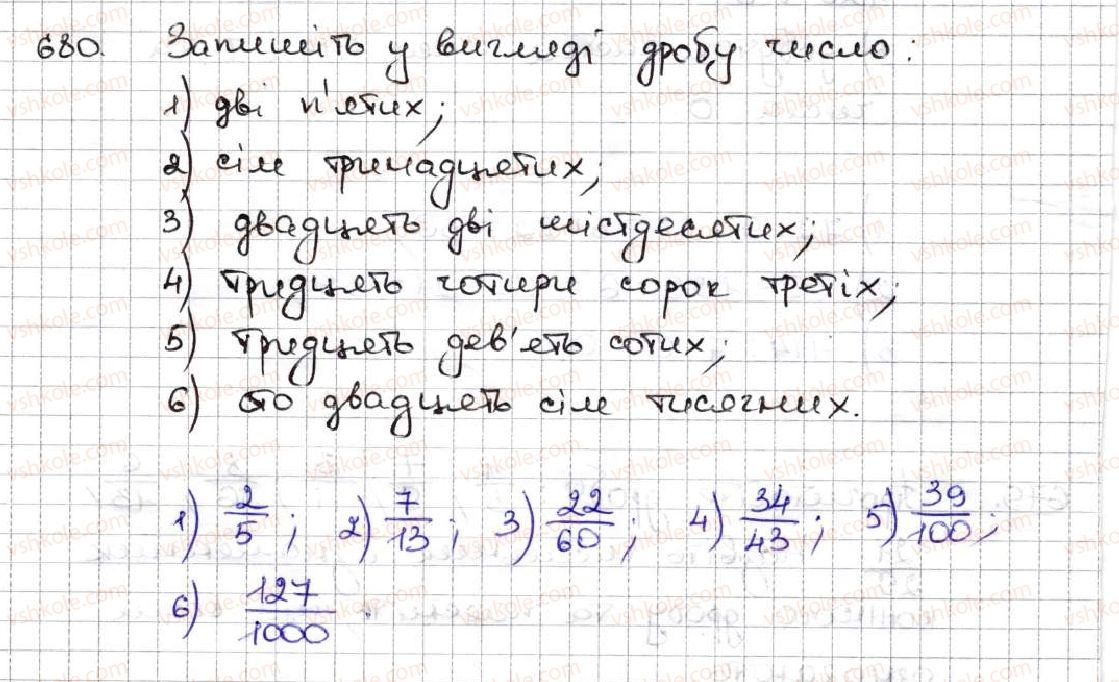 680. Запишіть у вигляді дробу число:
1) дві п'ятих;
2) сім тринадцятих;
3) двадцять дві шістдесятих;
4) тридцять чотири сорок третіх;
5) тридцять дев'ять сотих;
6) сто двадцять сім тисячних.
1) 2/5; 2) 7/13; 3) 22/60; 4) 34/43; 5) 39/100;
6) 127/1000.